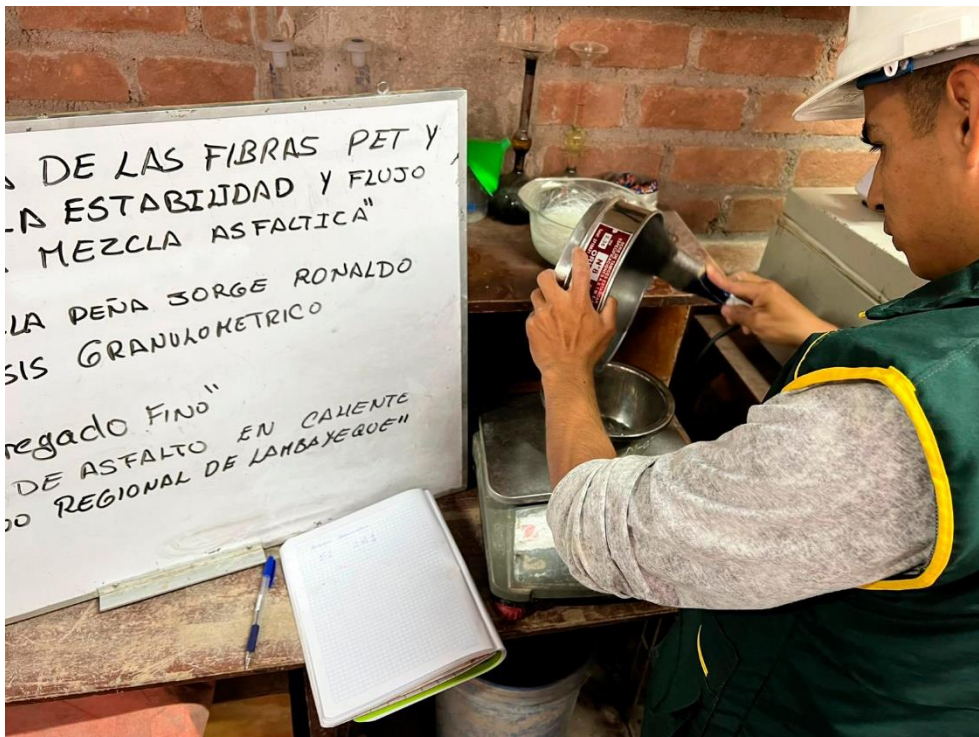 DE LAS FIBRAS PET Y
LA ESTABILIDAD Y FLUJO
MEZCLA ASFALTICA"
LA PEÑA JORGE RONALDO
SIS GRANULOMETRICO
regado FINO"
DE ASFALTO EN CALIENTE
DO REGIONAL DE LAMBAYEQUE"
N° 8